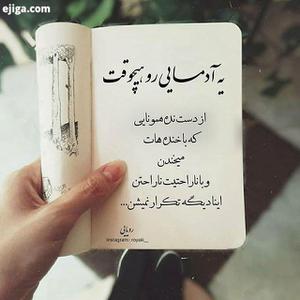 ejiga.com
یه آدمایی رو هیچوقت
از دست نده همونایی
که با خنده هات
میخندن
و با ناراحتیت ناراحتن
اینا دیگه تکرار نمیشن...
رویایی